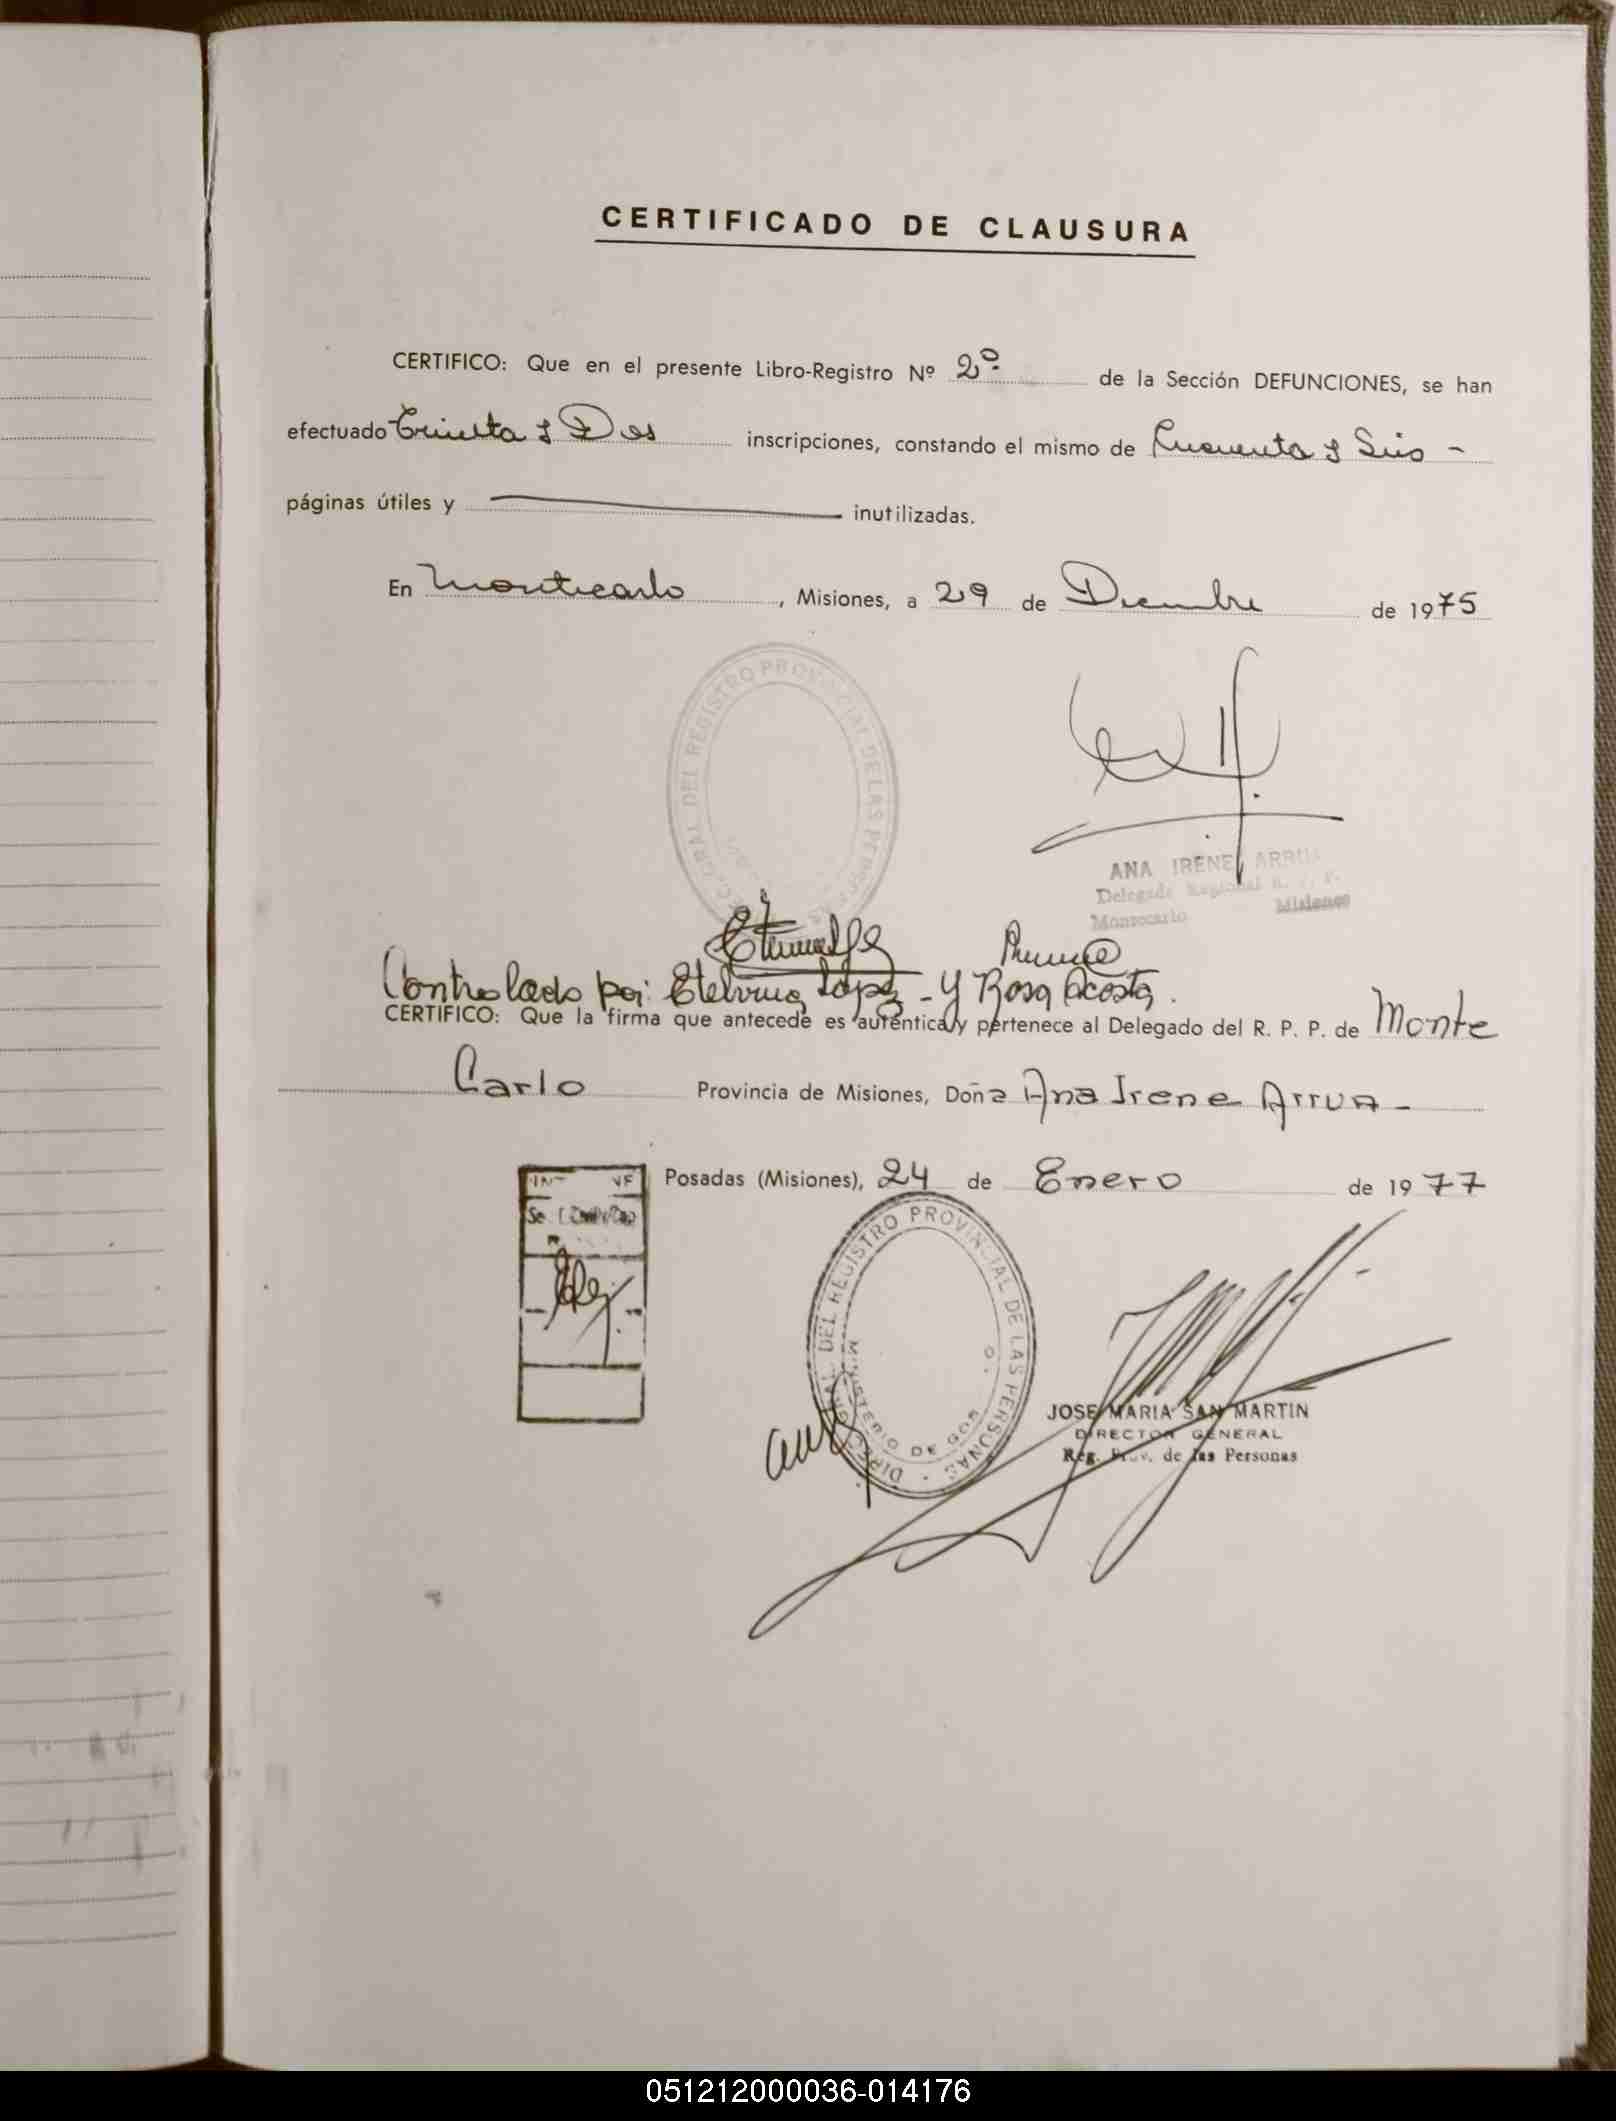 CERTIFICADO DE CLAUSURA
CERTIFICO: Que en el presente Libro-Registro Nº 2º de la Sección DEFUNCIONES, se han
efectuado Treinta y Dos inscripciones, constando el mismo de Cincuenta y Seis -
páginas útiles y inutilizadas.
En Montecarlo, Misiones, a 29 de Diciembre de 1975
GRAL. DEL REGISTRO PROVINCIAL DE LAS PERSONAS
ANA IRENE ARRUA
Delegada Regional R. P. P.
Montecarlo Misiones
Controlado por: Etelvina López - y Rosa Acosta.
CERTIFICO: Que la firma que antecede es auténtica y pertenece al Delegado del R. P. P. de Monte
Carlo Provincia de Misiones, Doña Ana Irene Arrua -
Posadas (Misiones), 24 de Enero de 1977
DIREC. GRAL. DEL REGISTRO PROVINCIAL DE LAS PERSONAS
MINISTERIO DE GOB
JOSE MARIA SAN MARTIN
DIRECTOR GENERAL
Reg. Prov. de las Personas
051212000036-014176